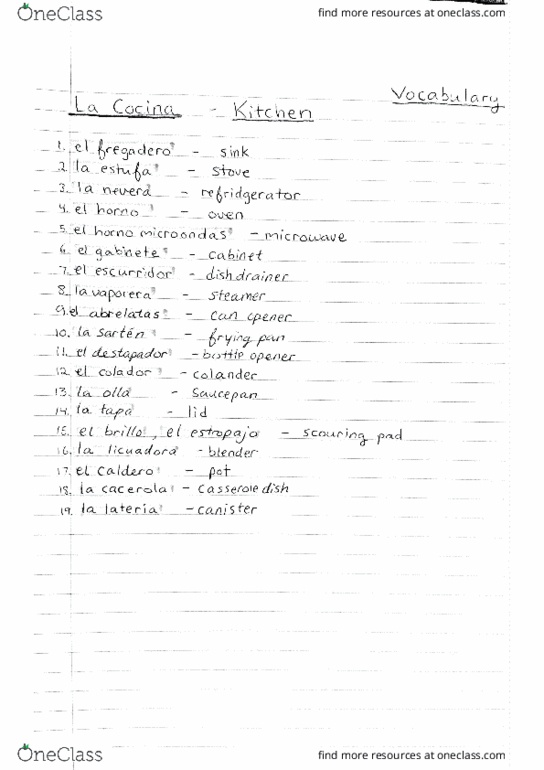 OneClass
find more resources at oneclass.com
Vocabulary
La Cocina - Kitchen
1. el fregadero - sink
2. la estufa - stove
3. la nevera - refridgerator
4. el horno - oven
5. el horno microondas - microwave
6. el gabinete - cabinet
7. el escurridor - dish drainer
8. la vaporera - steamer
9. el abrelatas - can opener
10. la sartén - frying pan
11. el destapador - bottle opener
12. el colador - colander
13. la olla - saucepan
14. la tapa - lid
15. el brillo, el estropajo - scouring pad
16. la licuadora - blender
17. el caldero - pot
18. la cacerola - casserole dish
19. la lateria - canister
OneClass
find more resources at oneclass.com